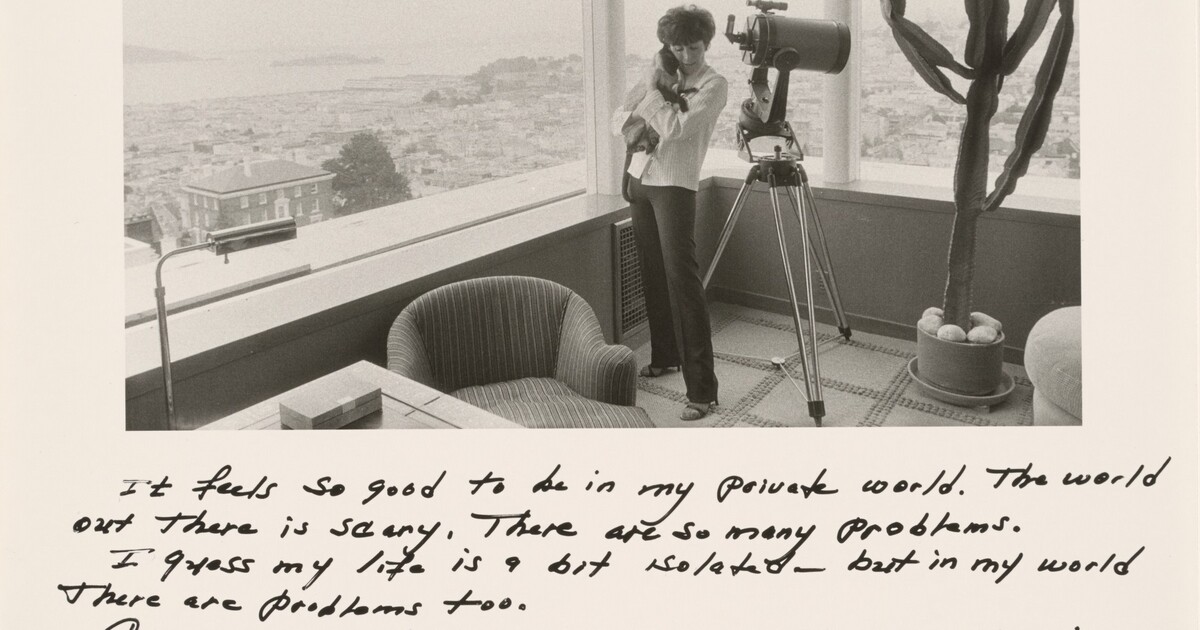 It feels so good to be in my private world. The world
out there is scary. There are so many problems.
I guess my life is a bit isolated – but in my world
There are problems too.